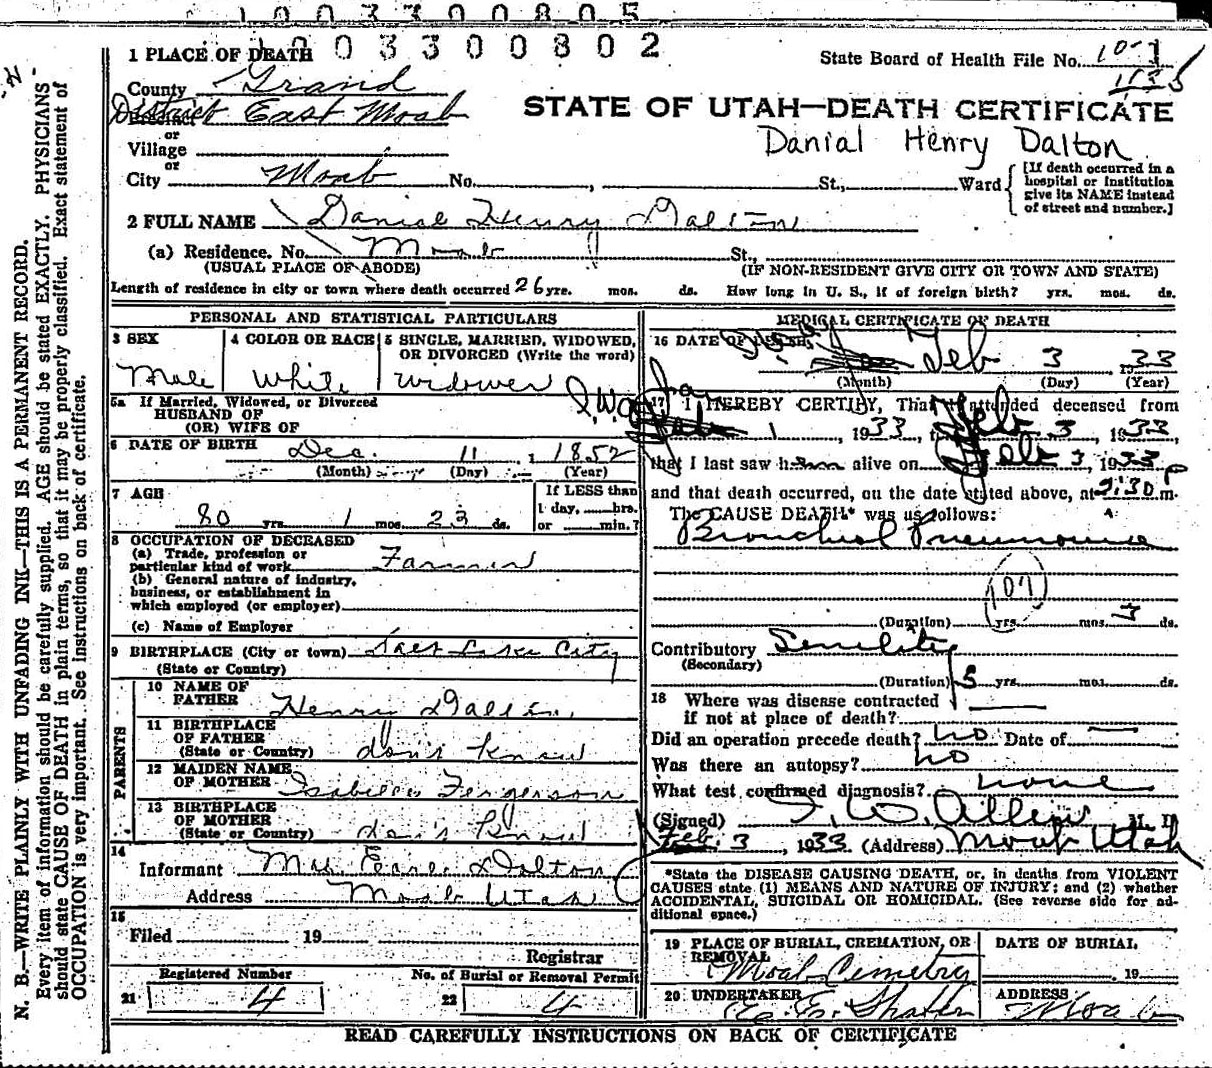 1003300805
1003300802
1 PLACE OF DEATH
State Board of Health File No. 10-
County Grand
District East Moab
STATE OF UTAH—DEATH CERTIFICATE
or
Village
Danial Henry Dalton
or
City Moab No. , St., Ward
[If death occurred in a
hospital or institution
give its NAME instead
of street and number.]
2 FULL NAME Daniel Henry Dalton
(a) Residence. No. Moab St.,
(USUAL PLACE OF ABODE) (IF NON-RESIDENT GIVE CITY OR TOWN AND STATE)
Length of residence in city or town where death occurred 26 yrs. mos. ds. How long in U. S., if of foreign birth? yrs. mos. ds.
PERSONAL AND STATISTICAL PARTICULARS
3 SEX
Male
4 COLOR OR RACE
White
5 SINGLE, MARRIED, WIDOWED,
OR DIVORCED (Write the word)
Widower
5a If Married, Widowed, or Divorced
HUSBAND OF
(OR) WIFE OF
6 DATE OF BIRTH Dec. 11, 1852
(Month) (Day) (Year)
7 AGE
80 yrs. 1 mos. 23 ds.
If LESS than
1 day, hrs.
or min.?
8 OCCUPATION OF DECEASED
(a) Trade, profession or
particular kind of work Farmer
(b) General nature of industry,
business, or establishment in
which employed (or employer)
(c) Name of Employer
9 BIRTHPLACE (City or town) Salt Lake City
(State or Country)
PARENTS
10 NAME OF
FATHER Henry Dalton
11 BIRTHPLACE
OF FATHER
(State or Country) don't know
12 MAIDEN NAME
OF MOTHER Isabella Fergerson
13 BIRTHPLACE
OF MOTHER
(State or Country) don't know
14
Informant Mrs. Earl Dalton
Address Moab Utah
15
Filed 19
Registrar
Registered Number
21 4
No. of Burial or Removal Permit
22 4
MEDICAL CERTIFICATE OF DEATH
16 DATE OF DEATH
Feb 3 1933
(Month) (Day) (Year)
17 I HEREBY CERTIFY, That I attended deceased from
1, 1933, to Feb 3, 1933,
that I last saw him alive on Feb 3, 1933
and that death occurred, on the date stated above, at 9:30 p m.
The CAUSE DEATH* was as follows:
Bronchial Pneumonia
107
(Duration) yrs. mos. 3 ds.
Contributory Senility
(Secondary)
(Duration) 5 yrs. mos. ds.
18 Where was disease contracted
if not at place of death?
Did an operation precede death? no Date of
Was there an autopsy? no
What test confirmed diagnosis? none
(Signed) I. W. Allen M. D.
Feb. 3, 1933 (Address) Moab Utah
*State the DISEASE CAUSING DEATH, or, in deaths from VIOLENT
CAUSES state (1) MEANS AND NATURE OF INJURY; and (2) whether
ACCIDENTAL, SUICIDAL OR HOMICIDAL. (See reverse side for ad-
ditional space.)
19 PLACE OF BURIAL, CREMATION, OR
REMOVAL
Moab Cemetry
DATE OF BURIAL
19
20 UNDERTAKER
E. E. Shafer
ADDRESS
Moab
READ CAREFULLY INSTRUCTIONS ON BACK OF CERTIFICATE
N. B.—WRITE PLAINLY WITH UNFADING INK—THIS IS A PERMANENT RECORD.
Every item of information should be carefully supplied. AGE should be stated EXACTLY. PHYSICIANS
should state CAUSE OF DEATH in plain terms, so that it may be properly classified. Exact statement of
OCCUPATION is very important. See instructions on back of certificate.